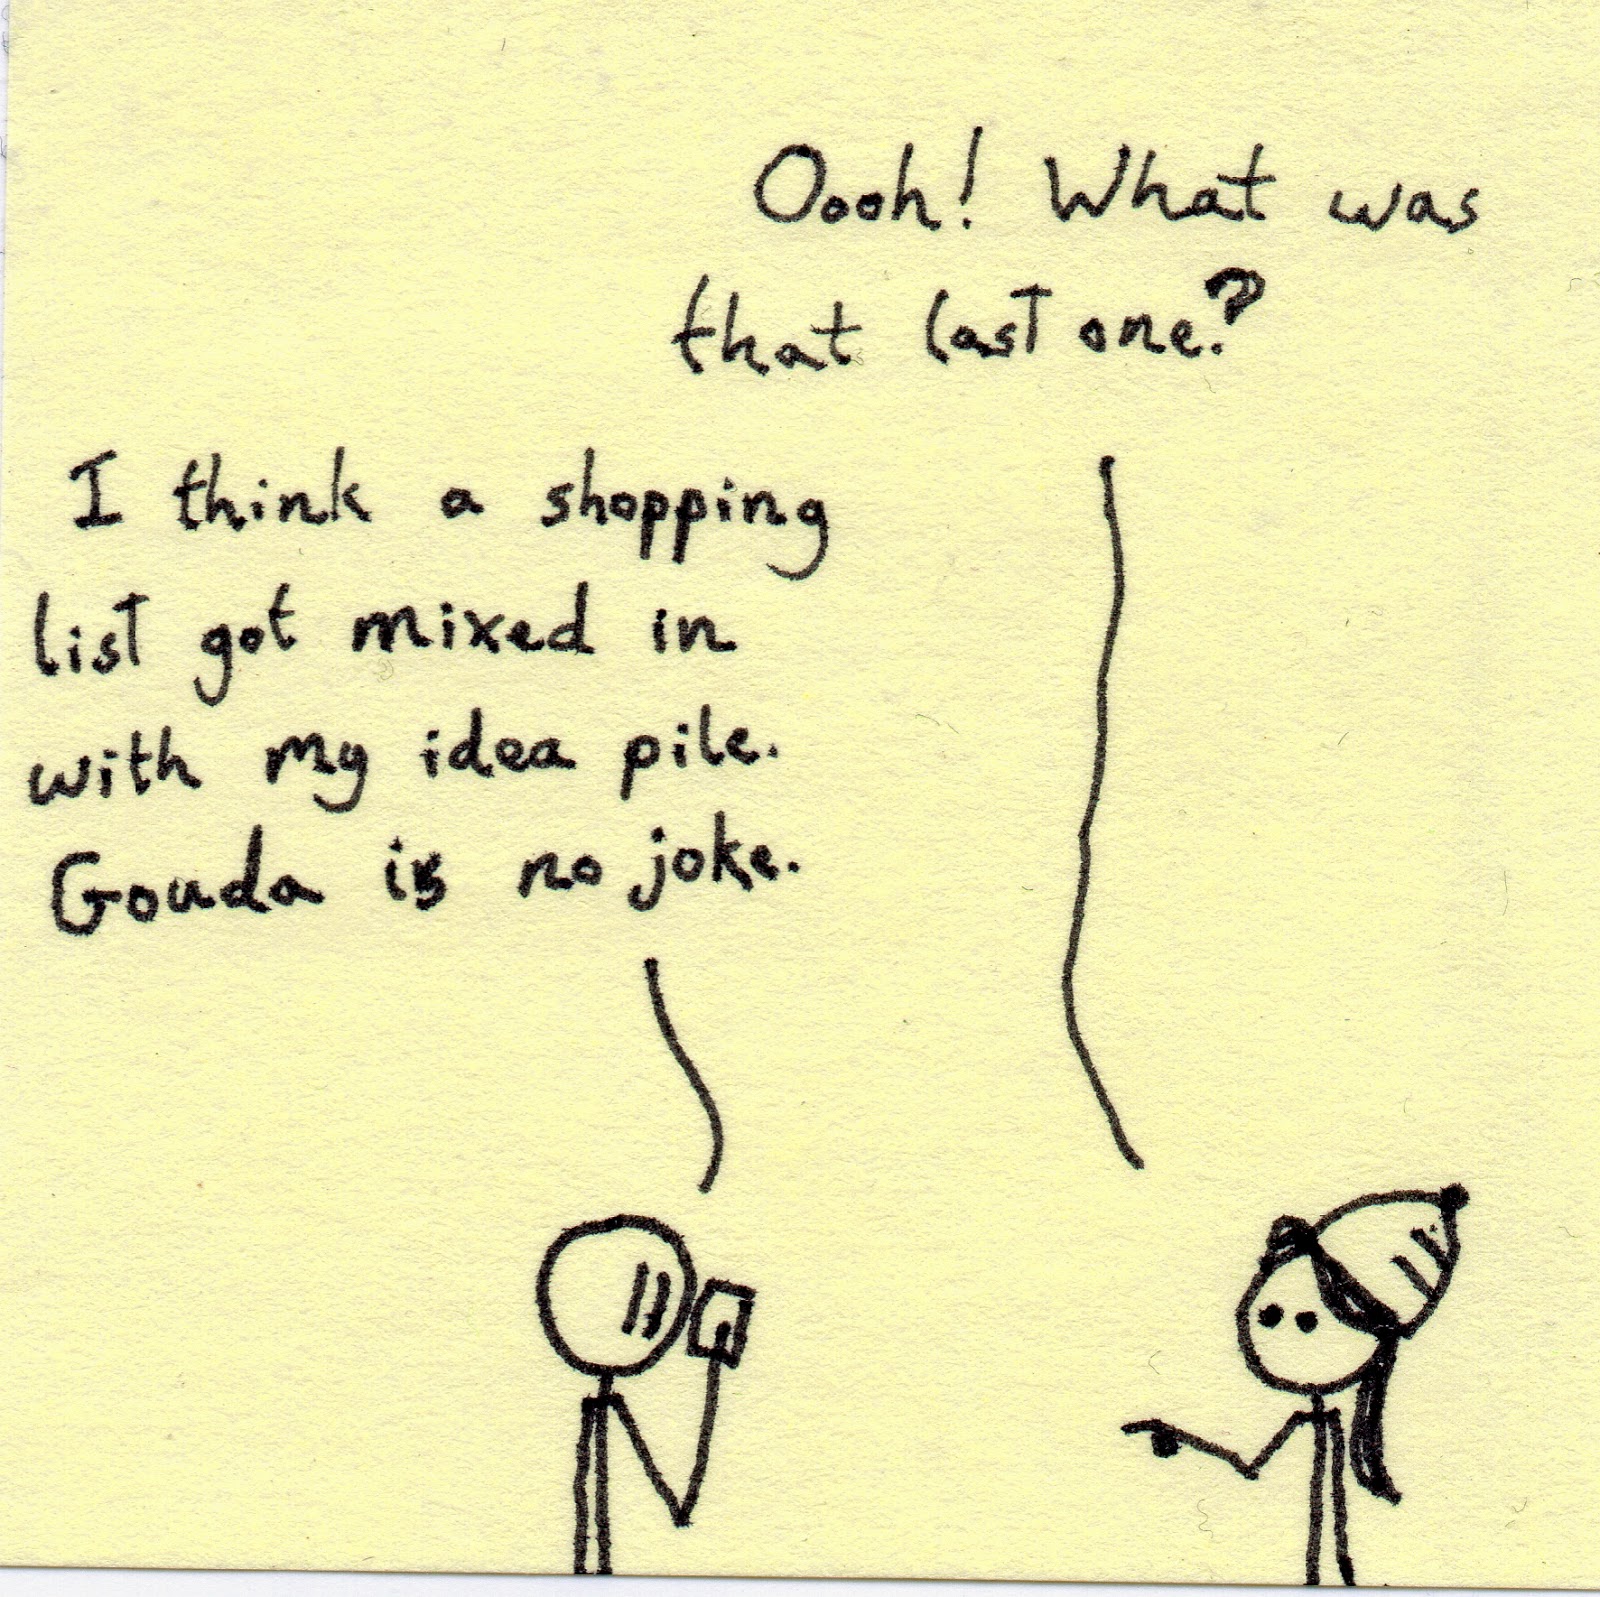 Oooh! What was
that last one?
I think a shopping
list got mixed in
with my idea pile.
Gouda is no joke.